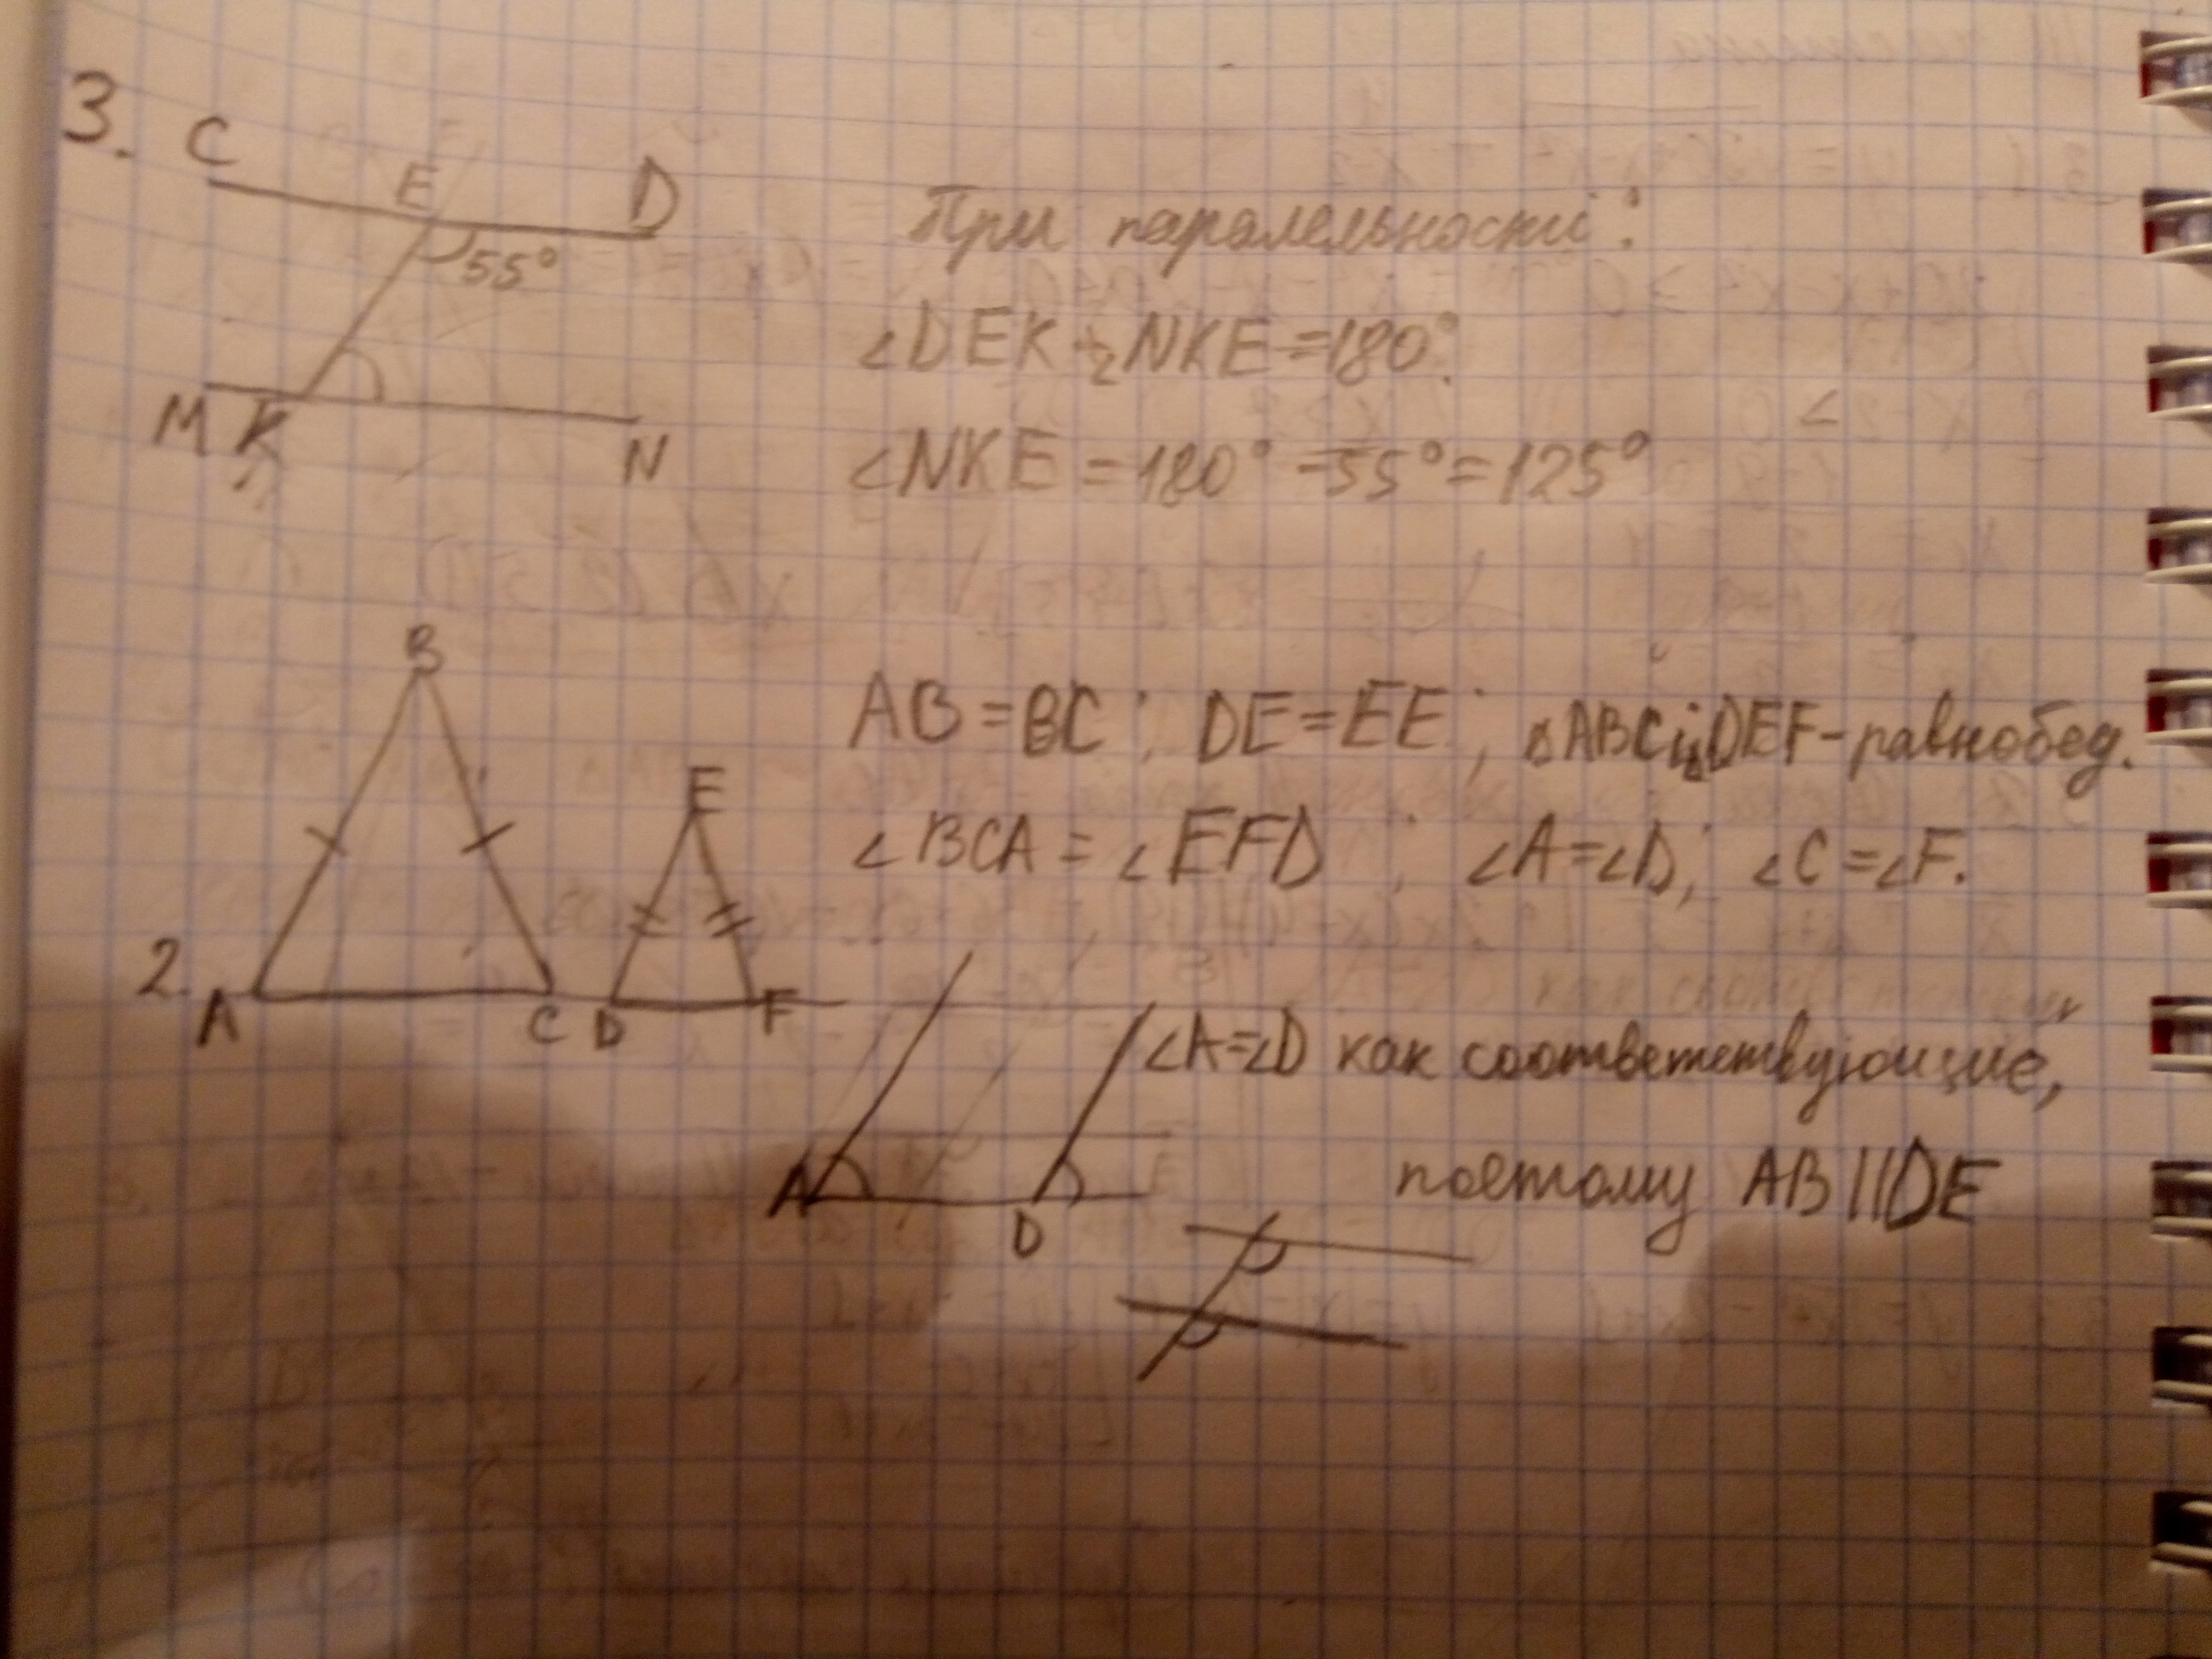 3. C E D
55°
M K N
При паралельности:
∠DEK + ∠NKE = 180°.
∠NKE = 180° - 55° = 125°
B
E
2. A C D F
AB = BC ; DE = EE ; △ABC и △DEF - равнобед.
∠BCA = ∠EFD ; ∠A = ∠D; ∠C = ∠F.
∠A = ∠D как соответствующие,
поэтому AB || DE
A D